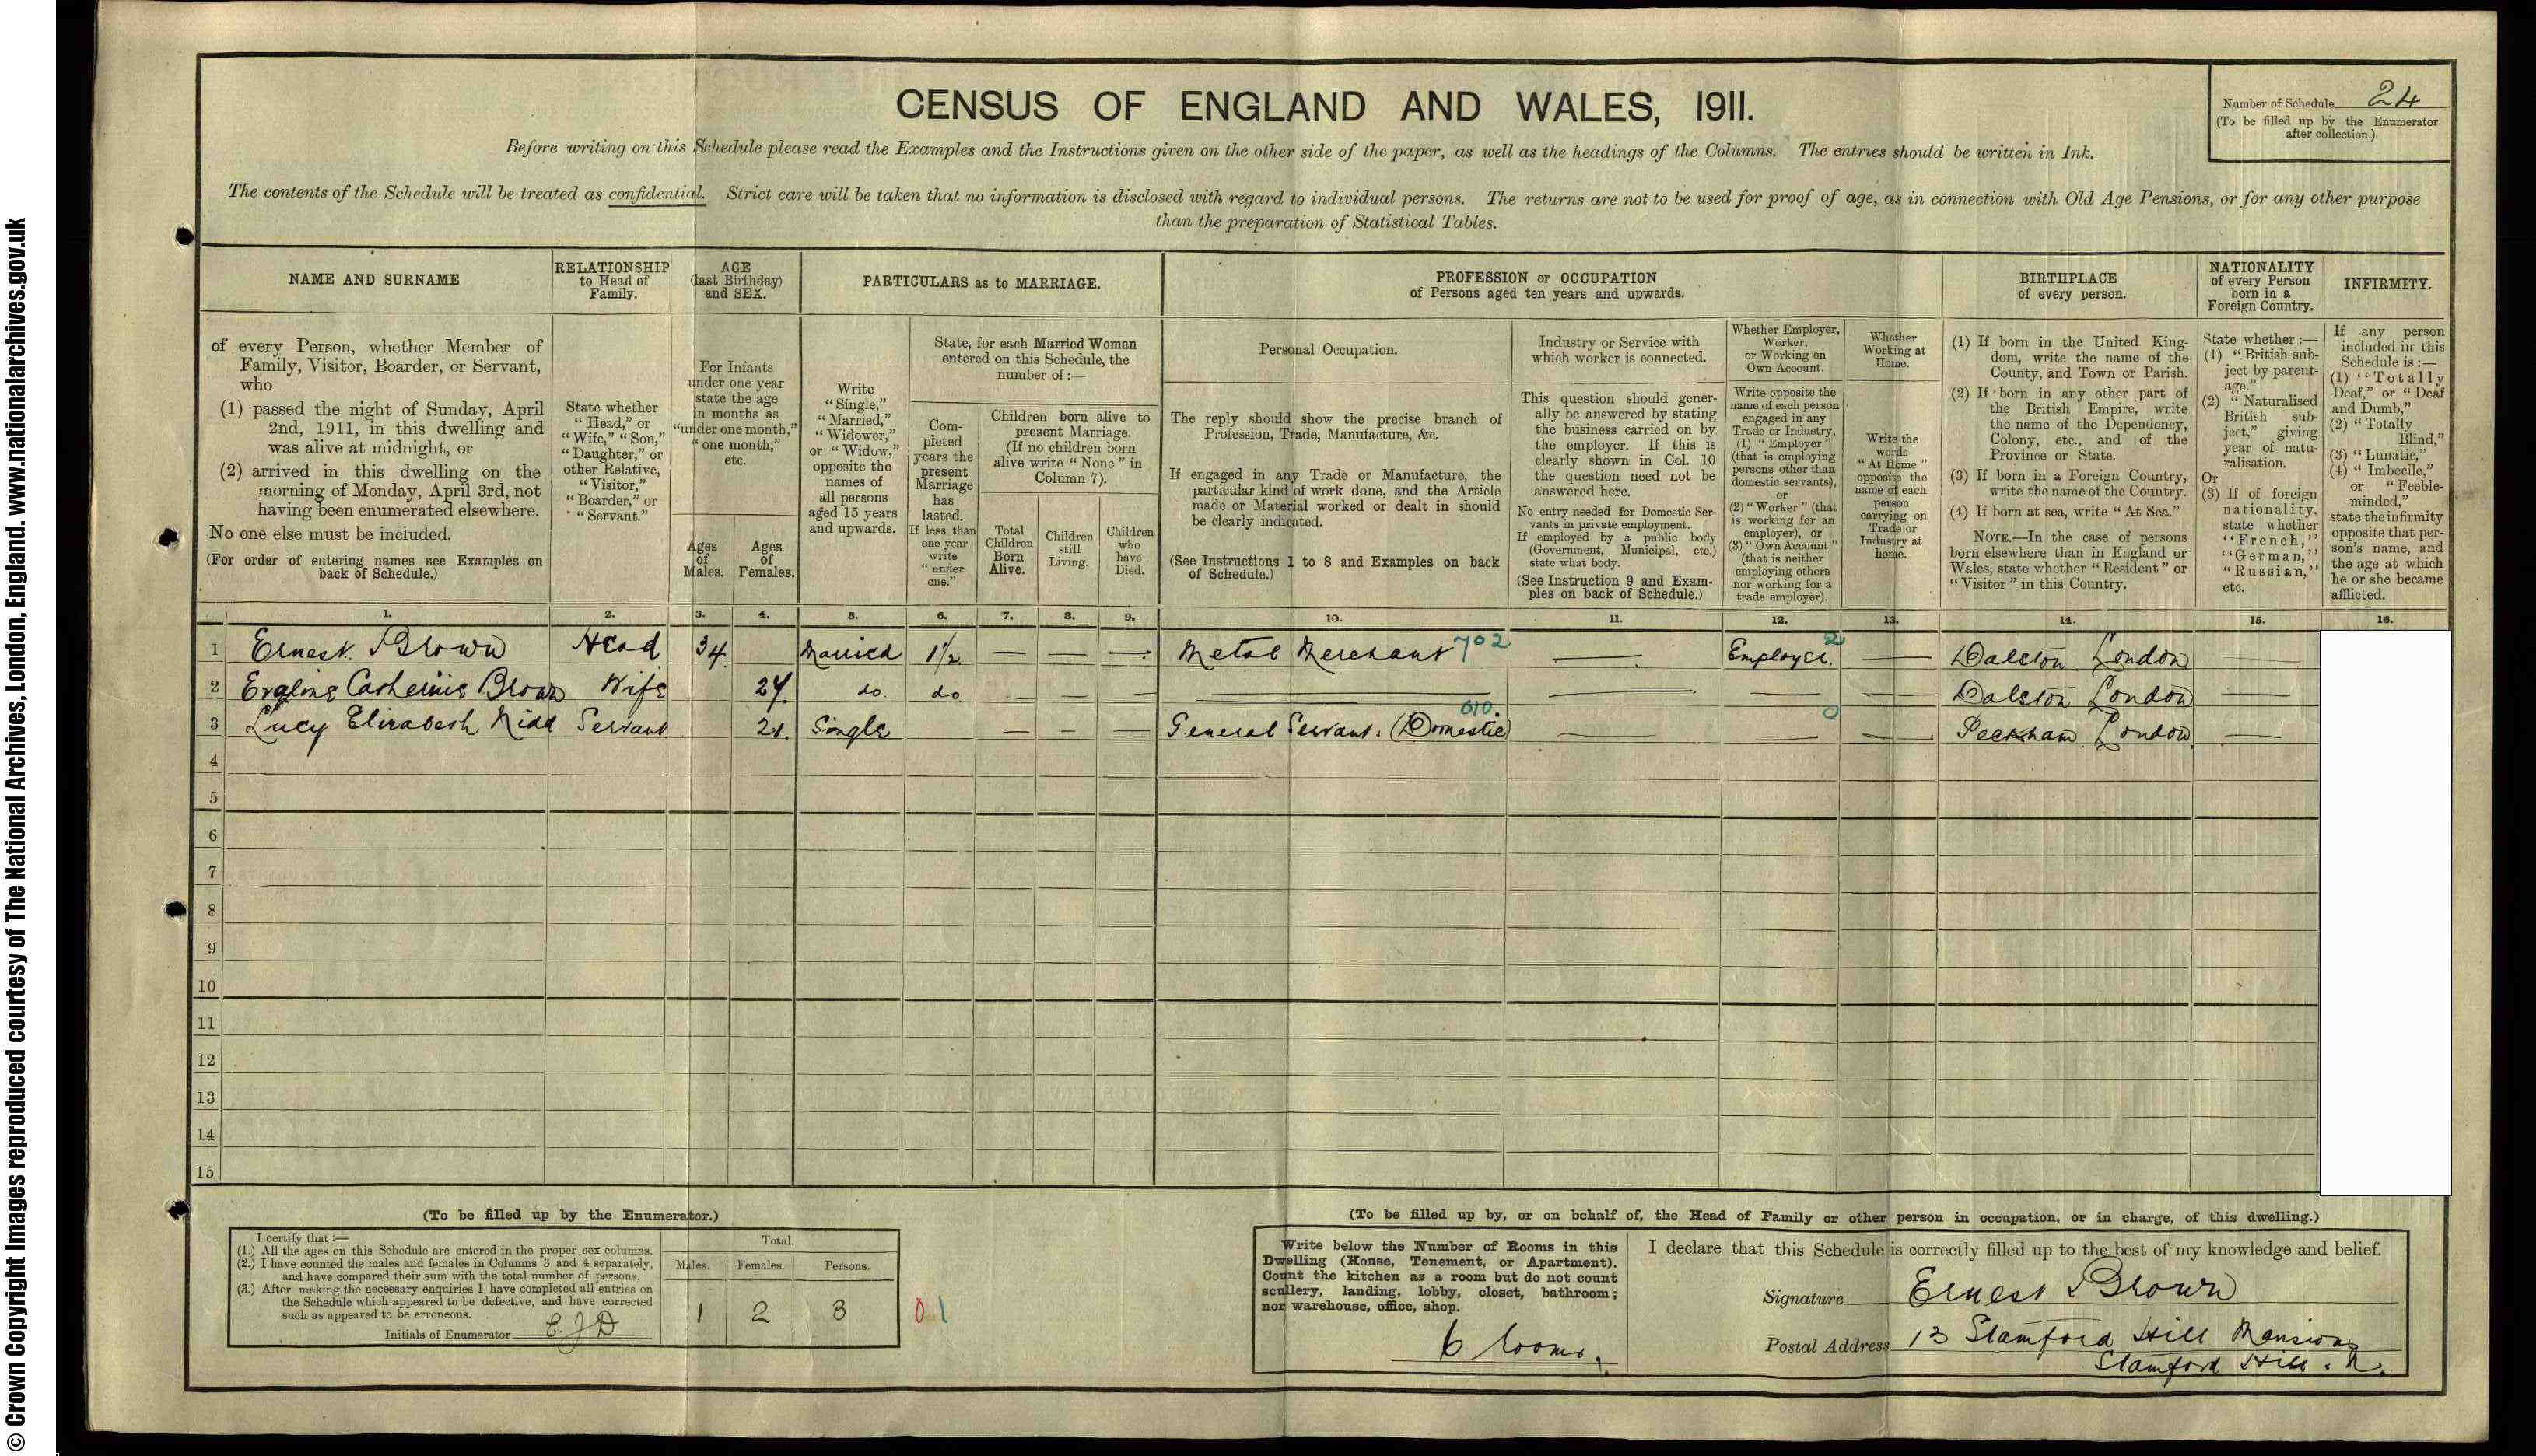 © Crown Copyright Images reproduced courtesy of The National Archives, London, England. www.nationalarchives.gov.uk
CENSUS OF ENGLAND AND WALES, 1911.
Number of Schedule 24
(To be filled up by the Enumerator
after collection.)
Before writing on this Schedule please read the Examples and the Instructions given on the other side of the paper, as well as the headings of the Columns. The entries should be written in Ink.
The contents of the Schedule will be treated as confidential. Strict care will be taken that no information is disclosed with regard to individual persons. The returns are not to be used for proof of age, as in connection with Old Age Pensions, or for any other purpose
than the preparation of Statistical Tables.
NAME AND SURNAME
of every Person, whether Member of
Family, Visitor, Boarder, or Servant,
who
(1) passed the night of Sunday, April
2nd, 1911, in this dwelling and
was alive at midnight, or
(2) arrived in this dwelling on the
morning of Monday, April 3rd, not
having been enumerated elsewhere.
No one else must be included.
(For order of entering names see Examples on
back of Schedule.)
RELATIONSHIP
to Head of
Family.
State whether
"Head," or
"Wife," "Son,"
"Daughter," or
other Relative,
"Visitor,"
"Boarder," or
"Servant."
AGE
(last Birthday)
and SEX.
For Infants
under one year
state the age
in months as
"under one month,"
"one month,"
etc.
Ages
of
Males.
Ages
of
Females.
PARTICULARS as to MARRIAGE.
Write
"Single,"
"Married,"
"Widower,"
or "Widow,"
opposite the
names of
all persons
aged 15 years
and upwards.
State, for each Married Woman
entered on this Schedule, the
number of:—
Com-
pleted
years the
present
Marriage
has
lasted.
If less than
one year
write
"under
one."
Children born alive to
present Marriage.
(If no children born
alive write "None" in
Column 7).
Total
Children
Born
Alive.
Children
still
Living.
Children
who
have
Died.
PROFESSION or OCCUPATION
of Persons aged ten years and upwards.
Personal Occupation.
The reply should show the precise branch of
Profession, Trade, Manufacture, &c.
If engaged in any Trade or Manufacture, the
particular kind of work done, and the Article
made or Material worked or dealt in should
be clearly indicated.
(See Instructions 1 to 8 and Examples on back
of Schedule.)
Industry or Service with
which worker is connected.
This question should gener-
ally be answered by stating
the business carried on by
the employer. If this is
clearly shown in Col. 10
the question need not be
answered here.
No entry needed for Domestic Ser-
vants in private employment.
If employed by a public body
(Government, Municipal, etc.)
state what body.
(See Instruction 9 and Exam-
ples on back of Schedule.)
Whether Employer,
Worker,
or Working on
Own Account.
Write opposite the
name of each person
engaged in any
Trade or Industry,
(1) "Employer"
(that is employing
persons other than
domestic servants),
or
(2) "Worker" (that
is working for an
employer), or
(3) "Own Account"
(that is neither
employing others
nor working for a
trade employer).
Whether
Working at
Home.
Write the
words
"At Home"
opposite the
name of each
person
carrying on
Trade or
Industry at
home.
BIRTHPLACE
of every person.
(1) If born in the United King-
dom, write the name of the
County, and Town or Parish.
(2) If born in any other part of
the British Empire, write
the name of the Dependency,
Colony, etc., and of the
Province or State.
(3) If born in a Foreign Country,
write the name of the Country.
(4) If born at sea, write "At Sea."
NOTE.—In the case of persons
born elsewhere than in England or
Wales, state whether "Resident" or
"Visitor" in this Country.
NATIONALITY
of every Person
born in a
Foreign Country.
State whether:—
(1) "British sub-
ject by parent-
age."
(2) "Naturalised
British sub-
ject," giving
year of natu-
ralisation.
Or
(3) If of foreign
nationality,
state whether
"French,"
"German,"
"Russian,"
etc.
INFIRMITY.
If any person
included in this
Schedule is:—
(1) "Totally
Deaf," or "Deaf
and Dumb,"
(2) "Totally
Blind,"
(3) "Lunatic,"
(4) "Imbecile,"
or "Feeble-
minded,"
state the infirmity
opposite that per-
son's name, and
the age at which
he or she became
afflicted.
1. 2. 3. 4. 5. 6. 7. 8. 9. 10. 11. 12. 13. 14. 15. 16.
1 Ernest Brown Head 34 Married 1½ — — — Metal Merchant 702 — Employer. 2 — Dalston London —
2 Evaline Catherine Brown Wife 27. do. do — — — — — — Dalston London —
3 Lucy Elizabeth Kidd Servant 21. Single — — — General Servant. (Domestic) 010. — — 0 — Peckham London —
4
5
6
7
8
9
10
11
12
13
14
15
(To be filled up by the Enumerator.)
I certify that:—
(1.) All the ages on this Schedule are entered in the proper sex columns.
(2.) I have counted the males and females in Columns 3 and 4 separately,
and have compared their sum with the total number of persons.
(3.) After making the necessary enquiries I have completed all entries on
the Schedule which appeared to be defective, and have corrected
such as appeared to be erroneous.
Initials of Enumerator E J D
Total.
Males. Females. Persons.
1 2 3
0 1
(To be filled up by, or on behalf of, the Head of Family or other person in occupation, or in charge, of this dwelling.)
Write below the Number of Rooms in this
Dwelling (House, Tenement, or Apartment).
Count the kitchen as a room but do not count
scullery, landing, lobby, closet, bathroom;
nor warehouse, office, shop.
6 rooms.
I declare that this Schedule is correctly filled up to the best of my knowledge and belief.
Signature Ernest Brown
Postal Address 13 Stamford Hill Mansions
Stamford Hill. N.